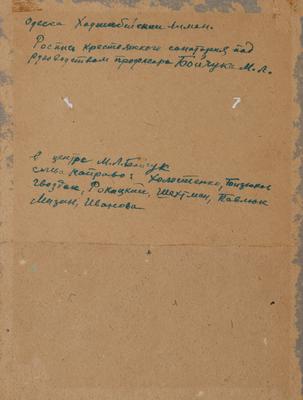 Одесса Хаджибейский лиман.
Роспись крестьянского санатория под
руководством профессора Бойчука М.Л.
В центре М.Л. Бойчук
слева направо: Холостенко, Бизюков
Гвоздик, Рокицкий, Шехтман, Павлюк
Мизин, Иванова